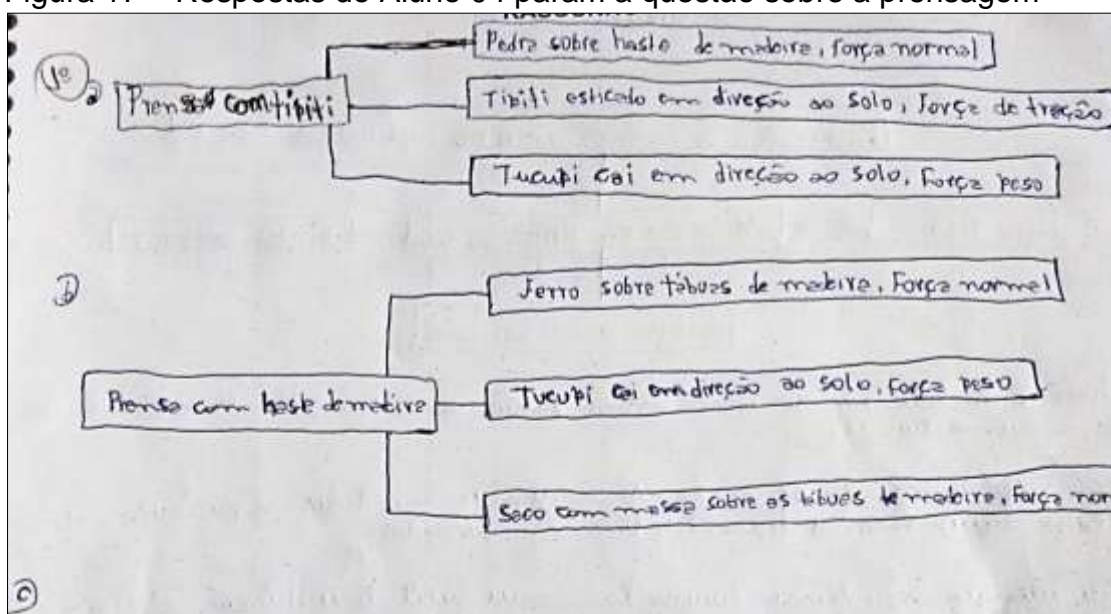 1º
a Prensa com tipiti
Pedra sobre haste de madeira, força normal
Tipiti esticado em direção ao solo, força de tração
Tucupi cai em direção ao solo, força peso
b
Prensa com haste de madeira
Ferro sobre tábuas de madeira, Força normal
Tucupi cai em direção ao solo, força peso
Saco com massa sobre as tábuas de madeira, força nor
c